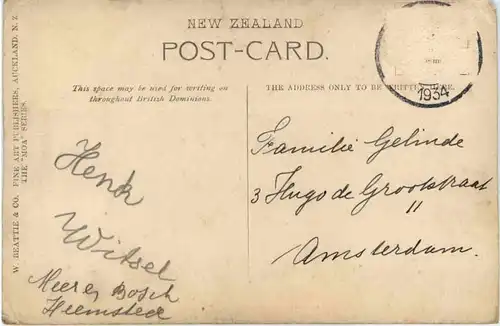 NEW ZEALAND
POST-CARD.
This space may be used for writing on
throughout British Dominions.
THE ADDRESS ONLY TO BE WRITTEN HERE.
1934
W. BEATTIE & CO. FINE ART PUBLISHERS, AUCKLAND, N.Z.
THE "MOA" SERIES.
Henk
Witsel
Meer en Bosch
Heemstede
Familie Gelinde
3 Hugo de Grootstraat
11
Amsterdam.